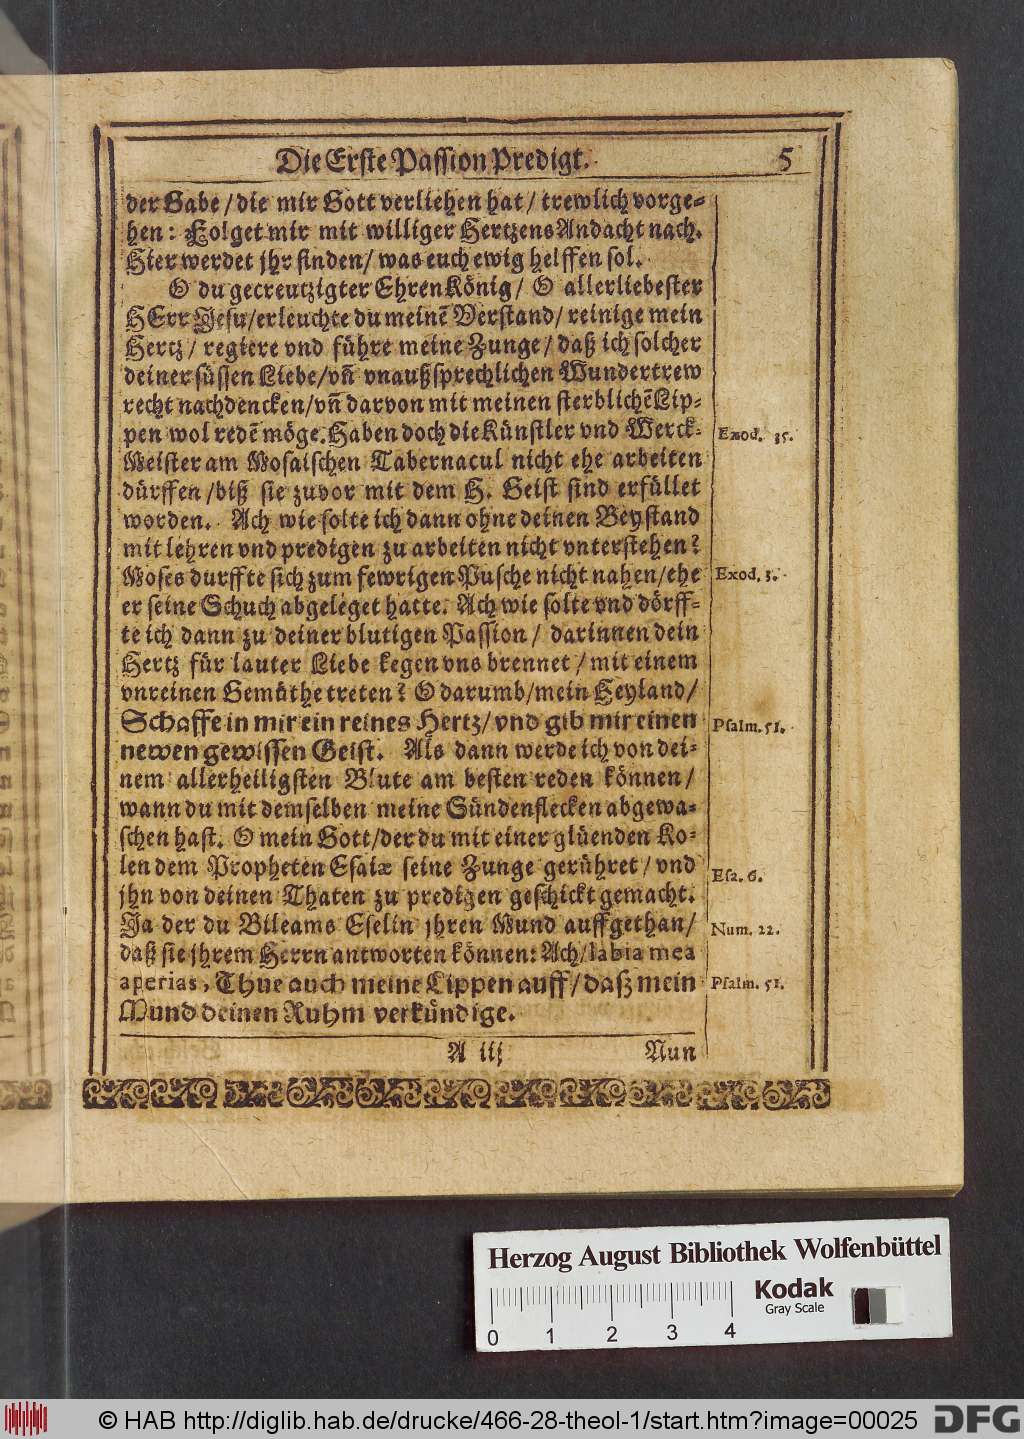 Die Erste Passion Predigt. 5
der Gabe / die mir Gott verliehen hat / trewlich vorge-
hen: Folget mir mit williger Hertzens Andacht nach.
Hier werdet jhr finden / was euch ewig helffen sol.
O du gecreutzigter EhrenKönig / O allerliebester
HErr Jesu / erleuchte du meinē Verstand / reinige mein
Hertz / regiere vnd führe meine Zunge / daß ich solcher
deiner süssen Liebe / vñ vnaußsprechlichen Wundertrew
recht nachdencken / vñ darvon mit meinen sterblichē Lip-
pen wol redē möge. Haben doch die Künstler vnd Werck-
Meister am Mosaischen Tabernacul nicht ehe arbeiten
dürffen / biß sie zuvor mit dem H. Geist sind erfüllet
worden. Ach wie solte ich dann ohne deinen Beystand
mit lehren vnd predigen zu arbeiten nicht vnterstehen?
Moses durffte sich zum fewrigen Pusche nicht nahen / ehe
er seine Schuch abgeleget hatte. Ach wie solte vnd dörff-
te ich dann zu deiner blutigen Passion / darinnen dein
Hertz für lauter Liebe kegen vns brennet / mit einem
vnreinen Gemüthe treten? O darumb / mein Heyland /
Schaffe in mir ein reines Hertz / vnd gib mir einen
newen gewissen Geist. Als dann werde ich von dei-
nem allerheiligsten Blute am besten reden können /
wann du mit demselben meine Sündenflecken abgewa-
schen hast. O mein Gott / der du mit einer glüenden Ko-
len dem Propheten Esaiæ seine Zunge gerühret / vnd
jhn von deinen Thaten zu predigen geschickt gemacht.
Ja der du Bileams Eselin jhren Mund auffgethan /
daß sie jhrem Herrn antworten können: Ach / labia mea
aperias, Thue auch meine Lippen auff / daß mein
Mund deinen Ruhm verkündige.
A iij Nun
Exod. 35.
Exod. 3.
Psalm. 51.
Esa. 6.
Num. 22.
Psalm. 51.
Herzog August Bibliothek Wolfenbüttel
Kodak
Gray Scale
0 1 2 3 4
© HAB http://diglib.hab.de/drucke/466-28-theol-1/start.htm?image=00025 DFG